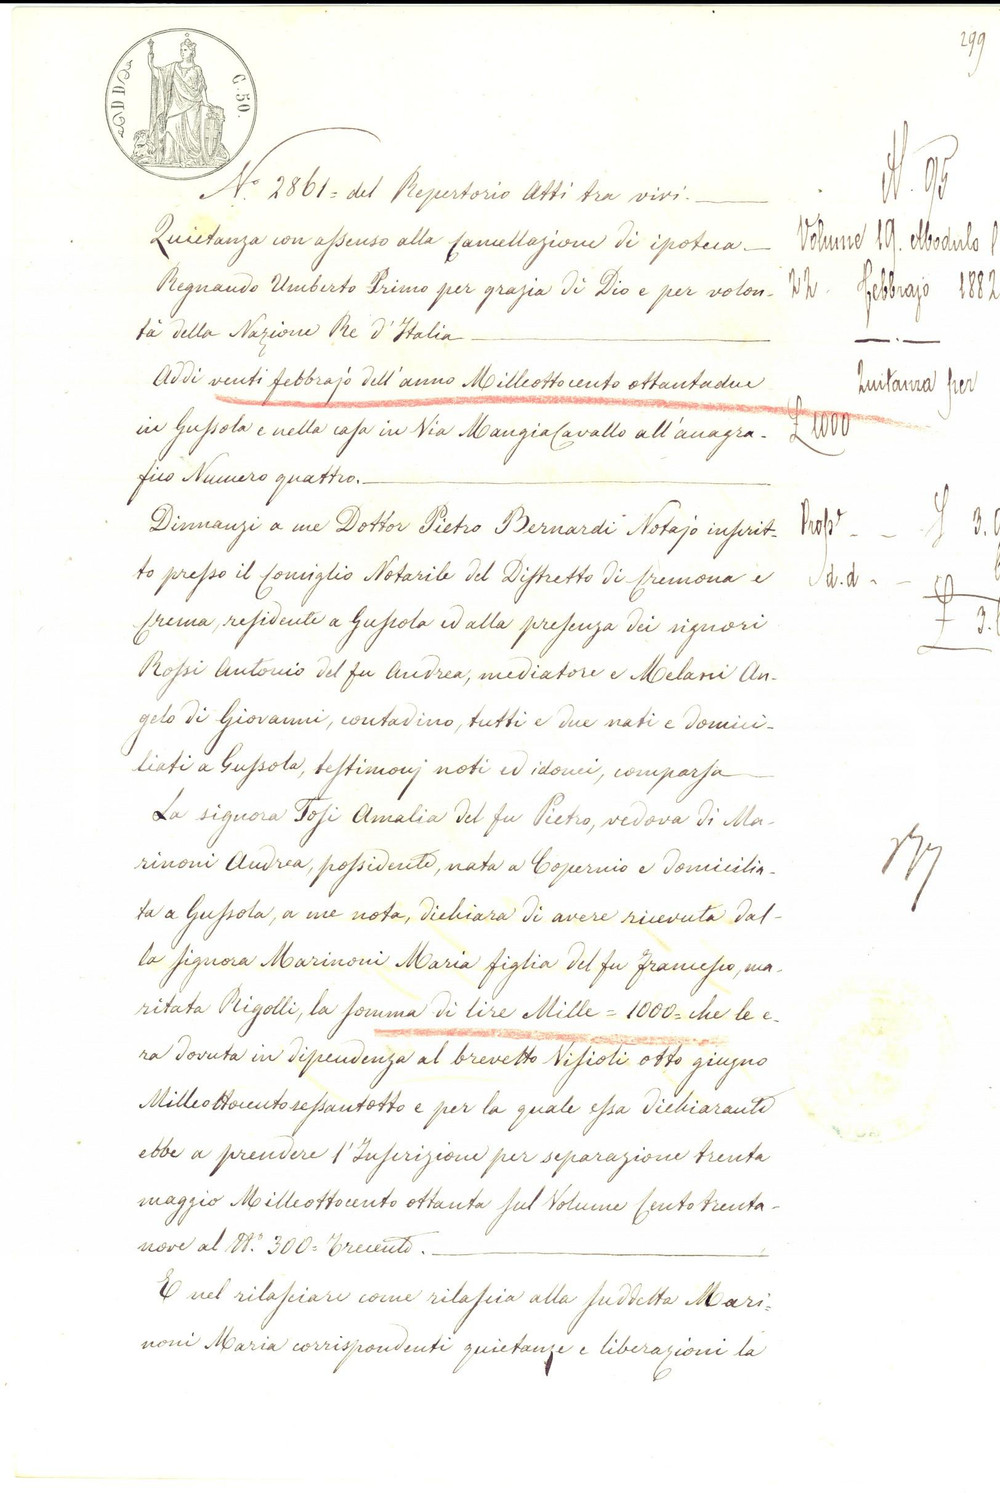 299
C. 50.
N.° 2861 = del Repertorio Atti tra vivi.
Quietanza con assenso alla Cancellazione di ipoteca.
Regnando Umberto Primo per grazia di Dio e per volon-
tà della Nazione Re d'Italia
Addi venti febbrajo dell'anno Milleottocento ottantadue
in Gussola e nella casa in Via MangiaCavallo all'anagra-
fico Numero quattro.
Dinnanzi a me Dottor Pietro Bernardi Notajo inscrit-
to presso il Consiglio Notarile del Distretto di Cremona e
Crema, residente a Gussola ed alla presenza dei signori
Rossi Antonio del fu Andrea, mediatore e Melani An-
gelo di Giovanni, contadino, tutti e due nati e domici-
liati a Gussola, testimonj noti ed idonei, comparsa
La signora Tosi Amalia del fu Pietro, vedova di Ma-
rinoni Andrea, possidente, nata a e domicilia-
ta a Gussola, a me nota, dichiara di avere ricevuta dal-
la signora Marinoni Maria figlia del fu Francesco, ma-
ritata Rigolli, la somma di lire Mille = 1000 = che le e-
ra dovuta in dipendenza al brevetto Vissioli otto giugno
Milleottocentosessantotto e per la quale essa dichiarante
ebbe a prendere l'Inscrizione per separazione trenta
maggio Milleottocento ottanta sul Volume Cento trenta-
nove al N.° 300 = Trecento.
E nel rilasciare come rilascia alla suddetta Mari-
noni Maria corrispondenti quietanze e liberazioni la
N. 95
Volume 19. Modulo 1
22 Febbrajo 1882
Quitanza per
£ 1000
£ 3.
d. d
£ 3.